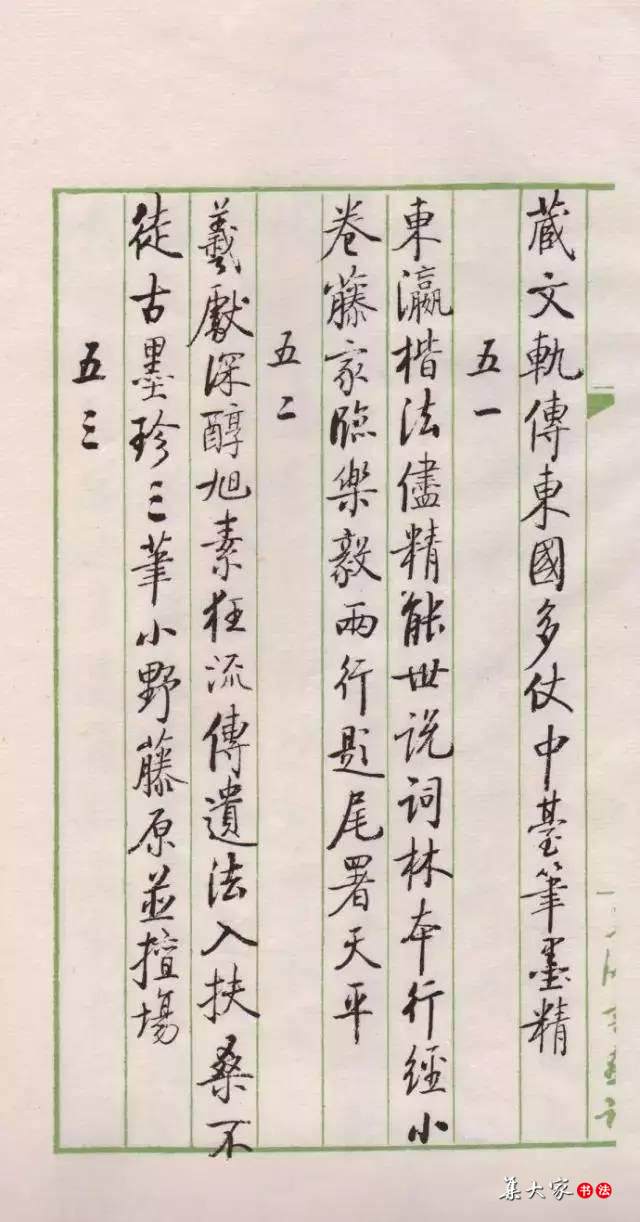 蔵文軌傳東國多仗中臺筆墨精
五一
東瀛楷法儘精能世说词林本行經小
卷藤家臨樂毅兩行題尾署天平
五二
羲獻深醇旭素狂流傳遺法入扶桑不
徒古墨珍三筆小野藤原並擅場
五三
集大家书法